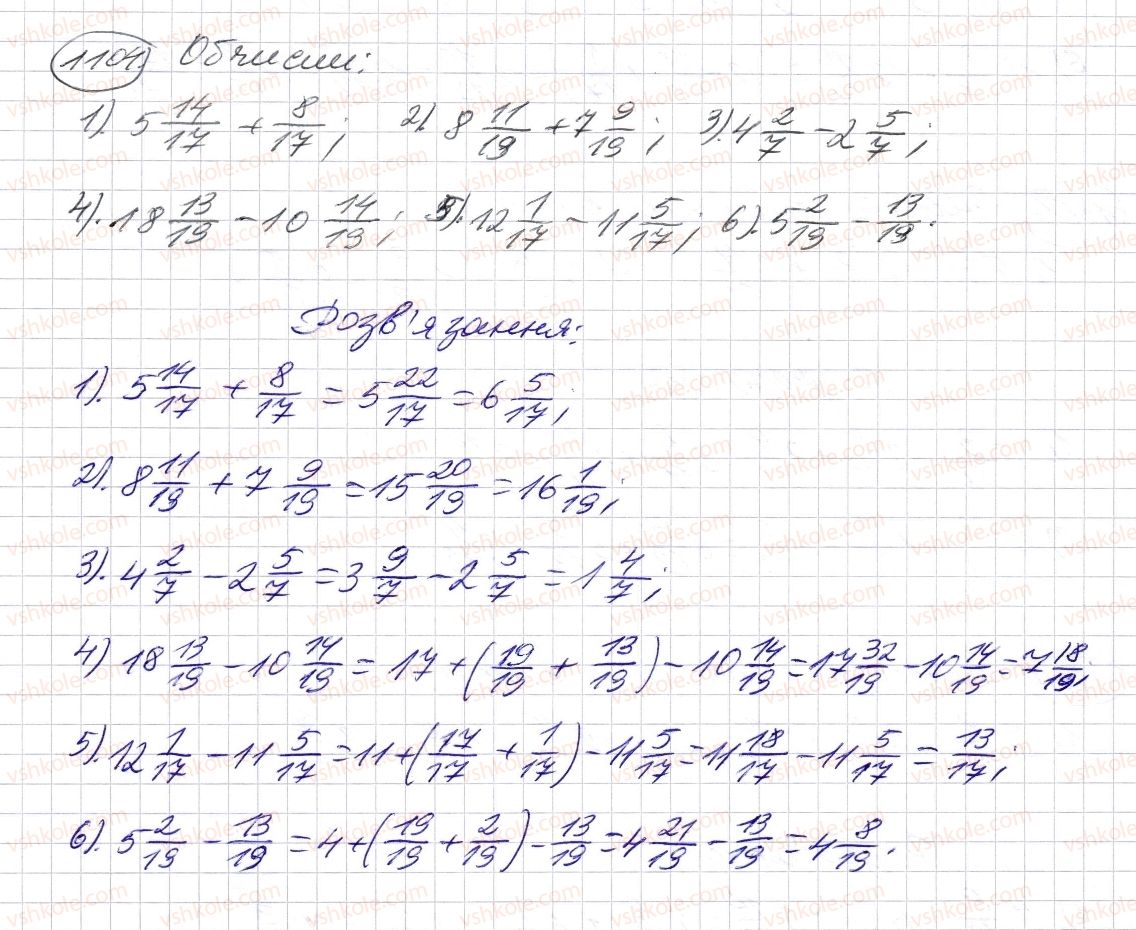 1104. Обчисли:
1). 5 14/17 + 8/17; 2). 8 11/19 + 7 9/19; 3). 4 2/7 - 2 5/7;
4). 18 13/19 - 10 14/19; 5). 12 1/17 - 11 5/17; 6). 5 2/19 - 13/19.
Розв'язання:
1). 5 14/17 + 8/17 = 5 22/17 = 6 5/17;
2). 8 11/19 + 7 9/19 = 15 20/19 = 16 1/19;
3). 4 2/7 - 2 5/7 = 3 9/7 - 2 5/7 = 1 4/7;
4) 18 13/19 - 10 14/19 = 17 + (19/19 + 13/19) - 10 14/19 = 17 32/19 - 10 14/19 = 7 18/19;
5). 12 1/17 - 11 5/17 = 11 + (17/17 + 1/17) - 11 5/17 = 11 18/17 - 11 5/17 = 13/17;
6). 5 2/19 - 13/19 = 4 + (19/19 + 2/19) - 13/19 = 4 21/19 - 13/19 = 4 8/19.